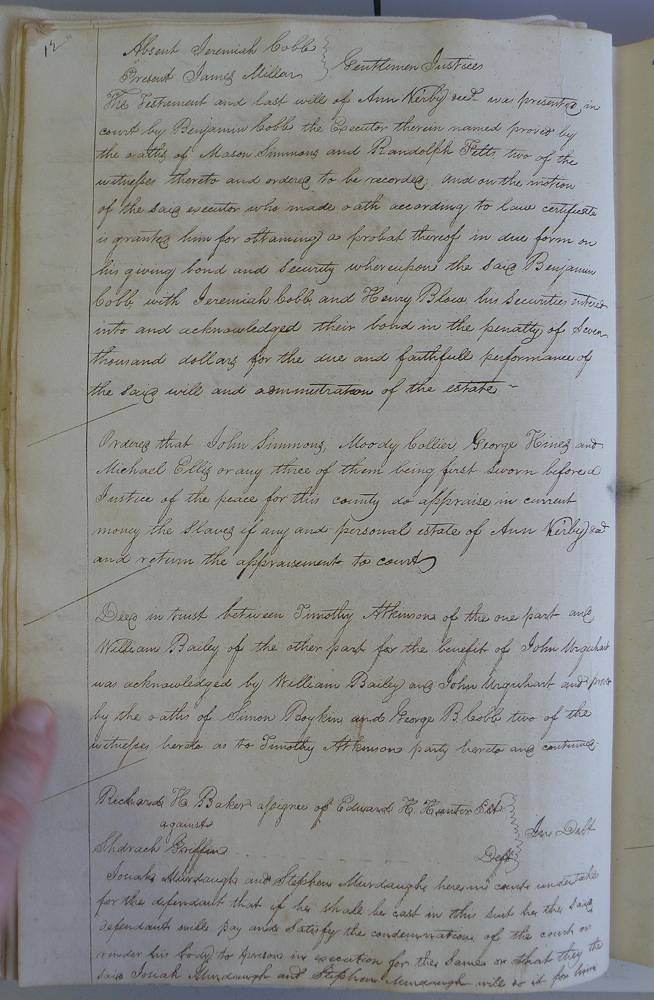 12
Absent Jeremiah Cobb
Present James Millar } Gentlemen Justices
The Testament and last will of Ann Kerby decd was presented in
court by Benjamin Cobb the Executor therein named proved by
the oaths of Mason Simmons and Randolph Fitts two of the
witnesses thereto and ordered to be recorded, and on the motion
of the said executor who made oath according to law certificate
is granted him for obtaining a probat thereof in due form on
his giving bond and Security whereupon the said Benjamin
Cobb with Jeremiah Cobb and Henry Blow his Securities entered
into and acknowledged their bond in the penalty of Seven
thousand dollars for the due and faithfull performance of
the said will and administration of the estate
Ordered that John Simmons, Moody Collier George Hines and
Michael Ellis or any three of them being first sworn before a
Justice of the peace for this county do appraise in current
money the Slaves if any and personal estate of Ann Kerby decd
and return the appraisement to court
Deed in trust between Timothy Atkinson of the one part and
William Bailey of the other part for the benefit of John Urquhart
was acknowledged by William Bailey and John Urquhart and
by the oaths of Simon Boykin and George B. Cobb two of the
witnesses hereto as to Timothy Atkinson party hereto and continued
Richard H Baker assignee of Edward H. Hunter
against } In Debt
Shdrach Griffin Deft
Josiah Murdaugh and Stephen Murdaugh here in court undertake
for the defendant that if he shall be cast in this suit he the said
defendant will pay and satisfy the condemnation of the court or
render his body to prison in execution for the same or that they the
said Josiah Murdaugh and Stephen Murdaugh will do it for him